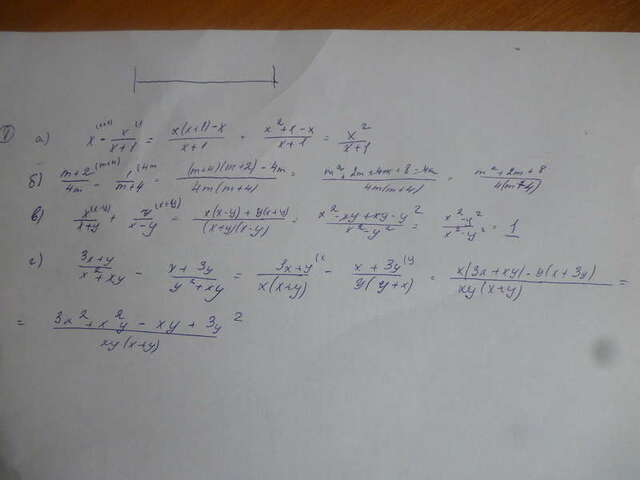 ① а) x^(x+1) - x^(1/x+1 = x(x+1)-x/x+1 = x²+1-x/x+1 = x²/x+1
б) m+2^(m+4)/4m - 1^(4m/m+4 = (m+4)(m+2)-4m/4m(m+4) = m²+2m+4m+8-4m/4m(m+4) = m²+2m+8/4(m+4)
в) x^(x-y)/x+y + y^(x+y)/x-y = x(x-y)+y(x+y)/(x+y)(x-y) = x²-xy+xy-y²/x²-y² = x²-y²/x²-y² = 1
г) 3x+y/x²+xy - x+3y/y²+xy = 3x+y^(x/x(x+y) - x+3y^(y/y(y+x) = x(3x+xy)-y(x+3y)/xy(x+y) =
= 3x²+x²y-xy+3y²/xy(x+y)